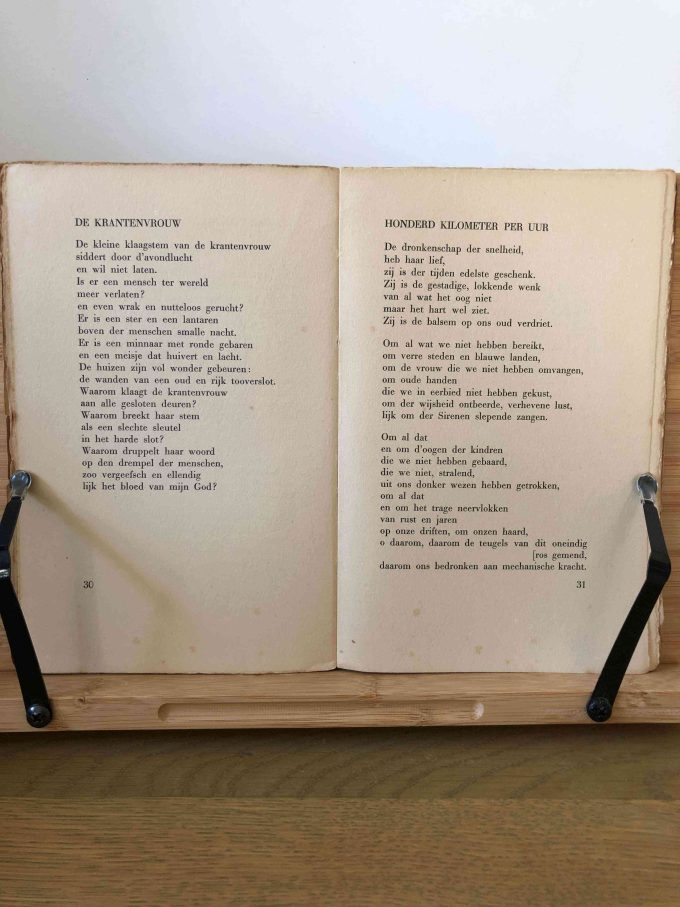 DE KRANTENVROUW
De kleine klaagstem van de krantenvrouw
siddert door d'avondlucht
en wil niet laten.
Is er een mensch ter wereld
meer verlaten?
en even wrak en nutteloos gerucht?
Er is een ster en een lantaren
boven der menschen smalle nacht.
Er is een minnaar met ronde gebaren
en een meisje dat huivert en lacht.
De huizen zijn vol wonder gebeuren:
de wanden van een oud en rijk tooverslot.
Waarom klaagt de krantenvrouw
aan alle gesloten deuren?
Waarom breekt haar stem
als een slechte sleutel
in het harde slot?
Waarom druppelt haar woord
op den drempel der menschen,
zoo vergeefsch en ellendig
lijk het bloed van mijn God?
30
HONDERD KILOMETER PER UUR
De dronkenschap der snelheid,
heb haar lief,
zij is der tijden edelste geschenk.
Zij is de gestadige, lokkende wenk
van al wat het oog niet
maar het hart wel ziet.
Zij is de balsem op ons oud verdriet.
Om al wat we niet hebben bereikt,
om verre steden en blauwe landen,
om de vrouw die we niet hebben omvangen,
om oude handen
die we in eerbied niet hebben gekust,
om der wijsheid ontbeerde, verhevene lust,
lijk om der Sirenen slepende zangen.
Om al dat
en om d'oogen der kindren
die we niet hebben gebaard,
die we niet, stralend,
uit ons donker wezen hebben getrokken,
om al dat
en om het trage neervlokken
van rust en jaren
op onze driften, om onzen haard,
o daarom, daarom de teugels van dit oneindig
[ros gemend,
daarom ons bedronken aan mechanische kracht.
31